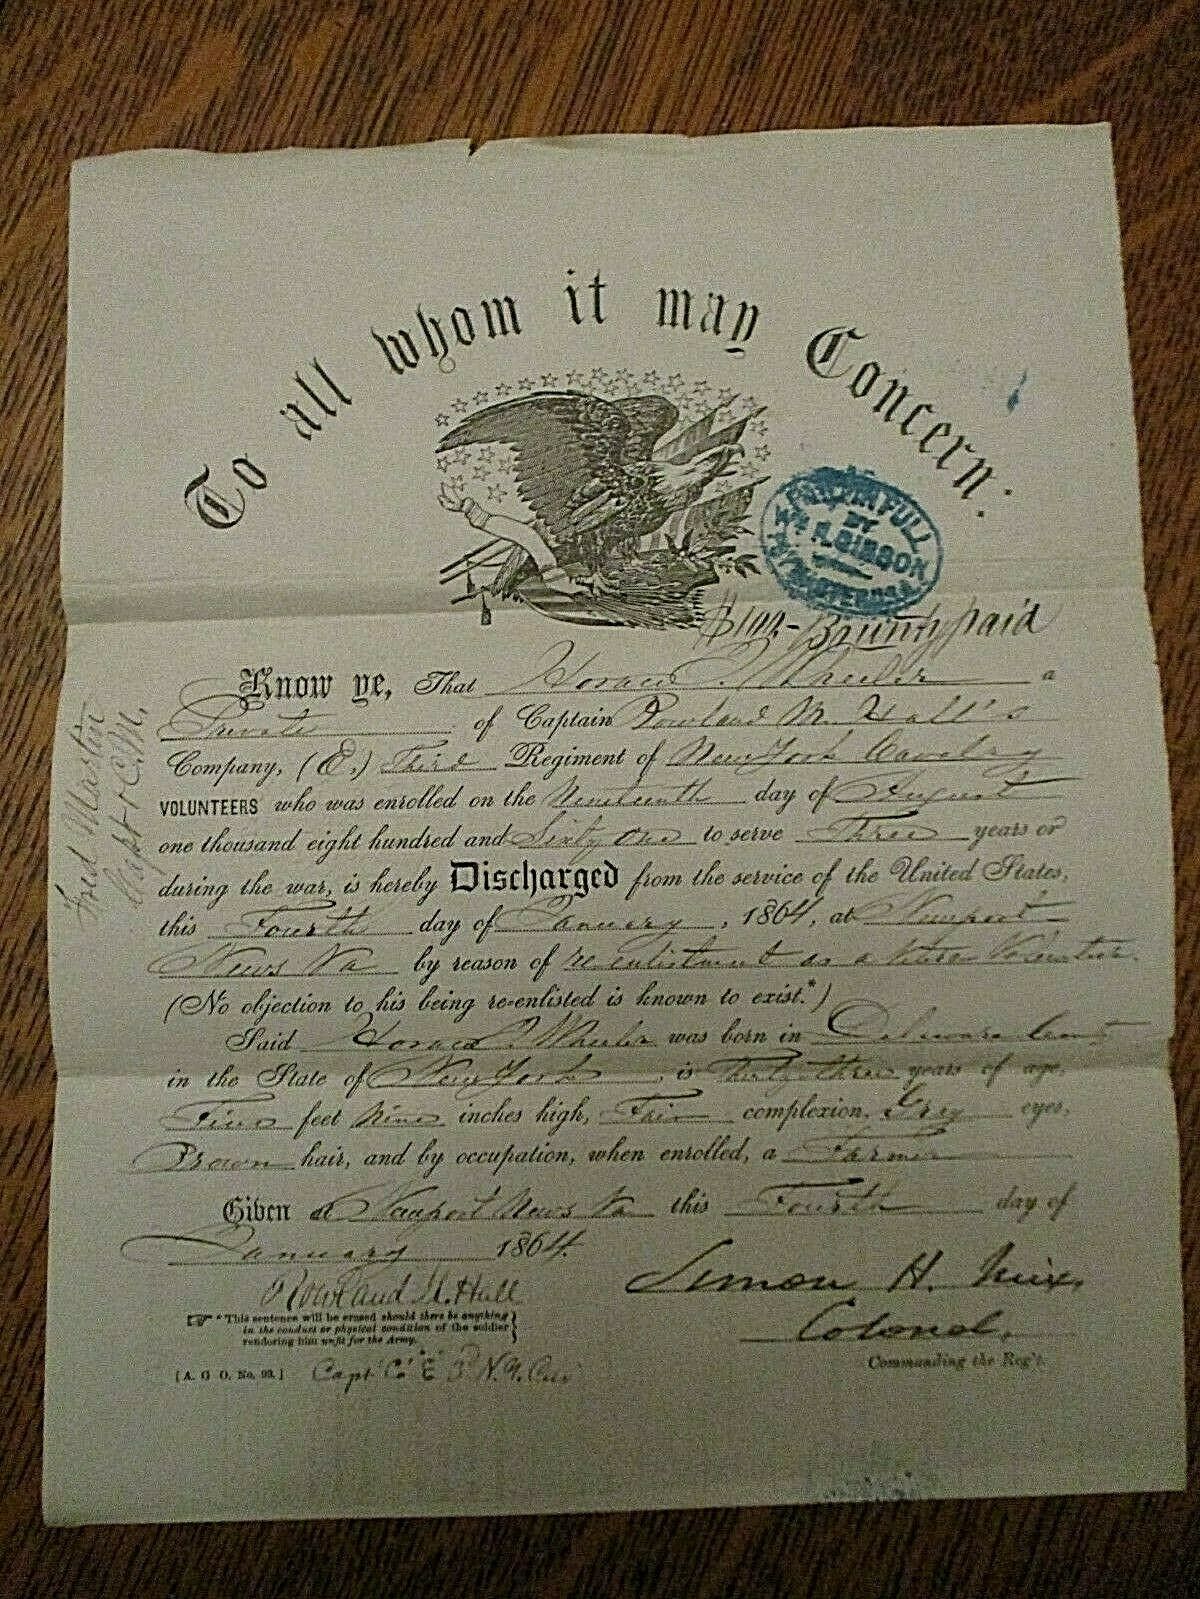 To all whom it may Concern:
PAID IN FULL
BY
Wm R. GIBSON
PAYMASTER U.S.A.
$100- Bounty paid
Know ye, That Horace Wheeler a
Private of Captain Rowland M. Hall's
Company, (E,) Third Regiment of New York Cavalry
VOLUNTEERS who was enrolled on the Nineteenth day of August
one thousand eight hundred and Sixty one to serve Three years or
during the war, is hereby Discharged from the service of the United States,
this Fourth day of January, 1864, at Newport
News Va by reason of re enlistment as a Volunteer.
(No objection to his being re-enlisted is known to exist.*)
Said Horace Wheeler was born in Delaware
in the State of New York, is Thirty three years of age,
Five feet Nine inches high, Fair complexion, Grey eyes,
Brown hair, and by occupation, when enrolled, a Farmer
Given at Newport News Va this Fourth day of
January 1864.
Rowland M. Hall
Simon H. Mix,
☞ *This sentence will be erased should there be anything
in the conduct or physical condition of the soldier
rendering him unfit for the Army.
Colonel,
Commanding the Reg't.
[A. G. O. No. 99.] Capt Co "E" 3d N.Y. Cav
Fred Martin
Capt & C.M.